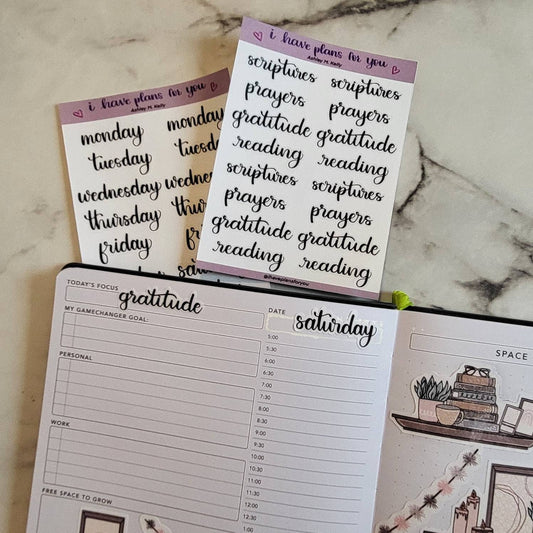 i have plans for you
Ashley M. Kelly
monday monday
tuesday
wednesday
thursday
friday
i have plans for you
Ashley M. Kelly
scriptures scriptures
prayers prayers
gratitude gratitude
reading reading
scriptures scriptures
prayers prayers
gratitude gratitude
reading reading
TODAY'S FOCUS
gratitude
MY GAMECHANGER GOAL:
PERSONAL
WORK
FREE SPACE TO GROW
DATE
saturday
5:00
5:30
6:00
6:30
7:00
7:30
8:00
8:30
9:00
9:30
10:00
10:30
11:00
11:30
12:00
12:30
1:00
SPACE